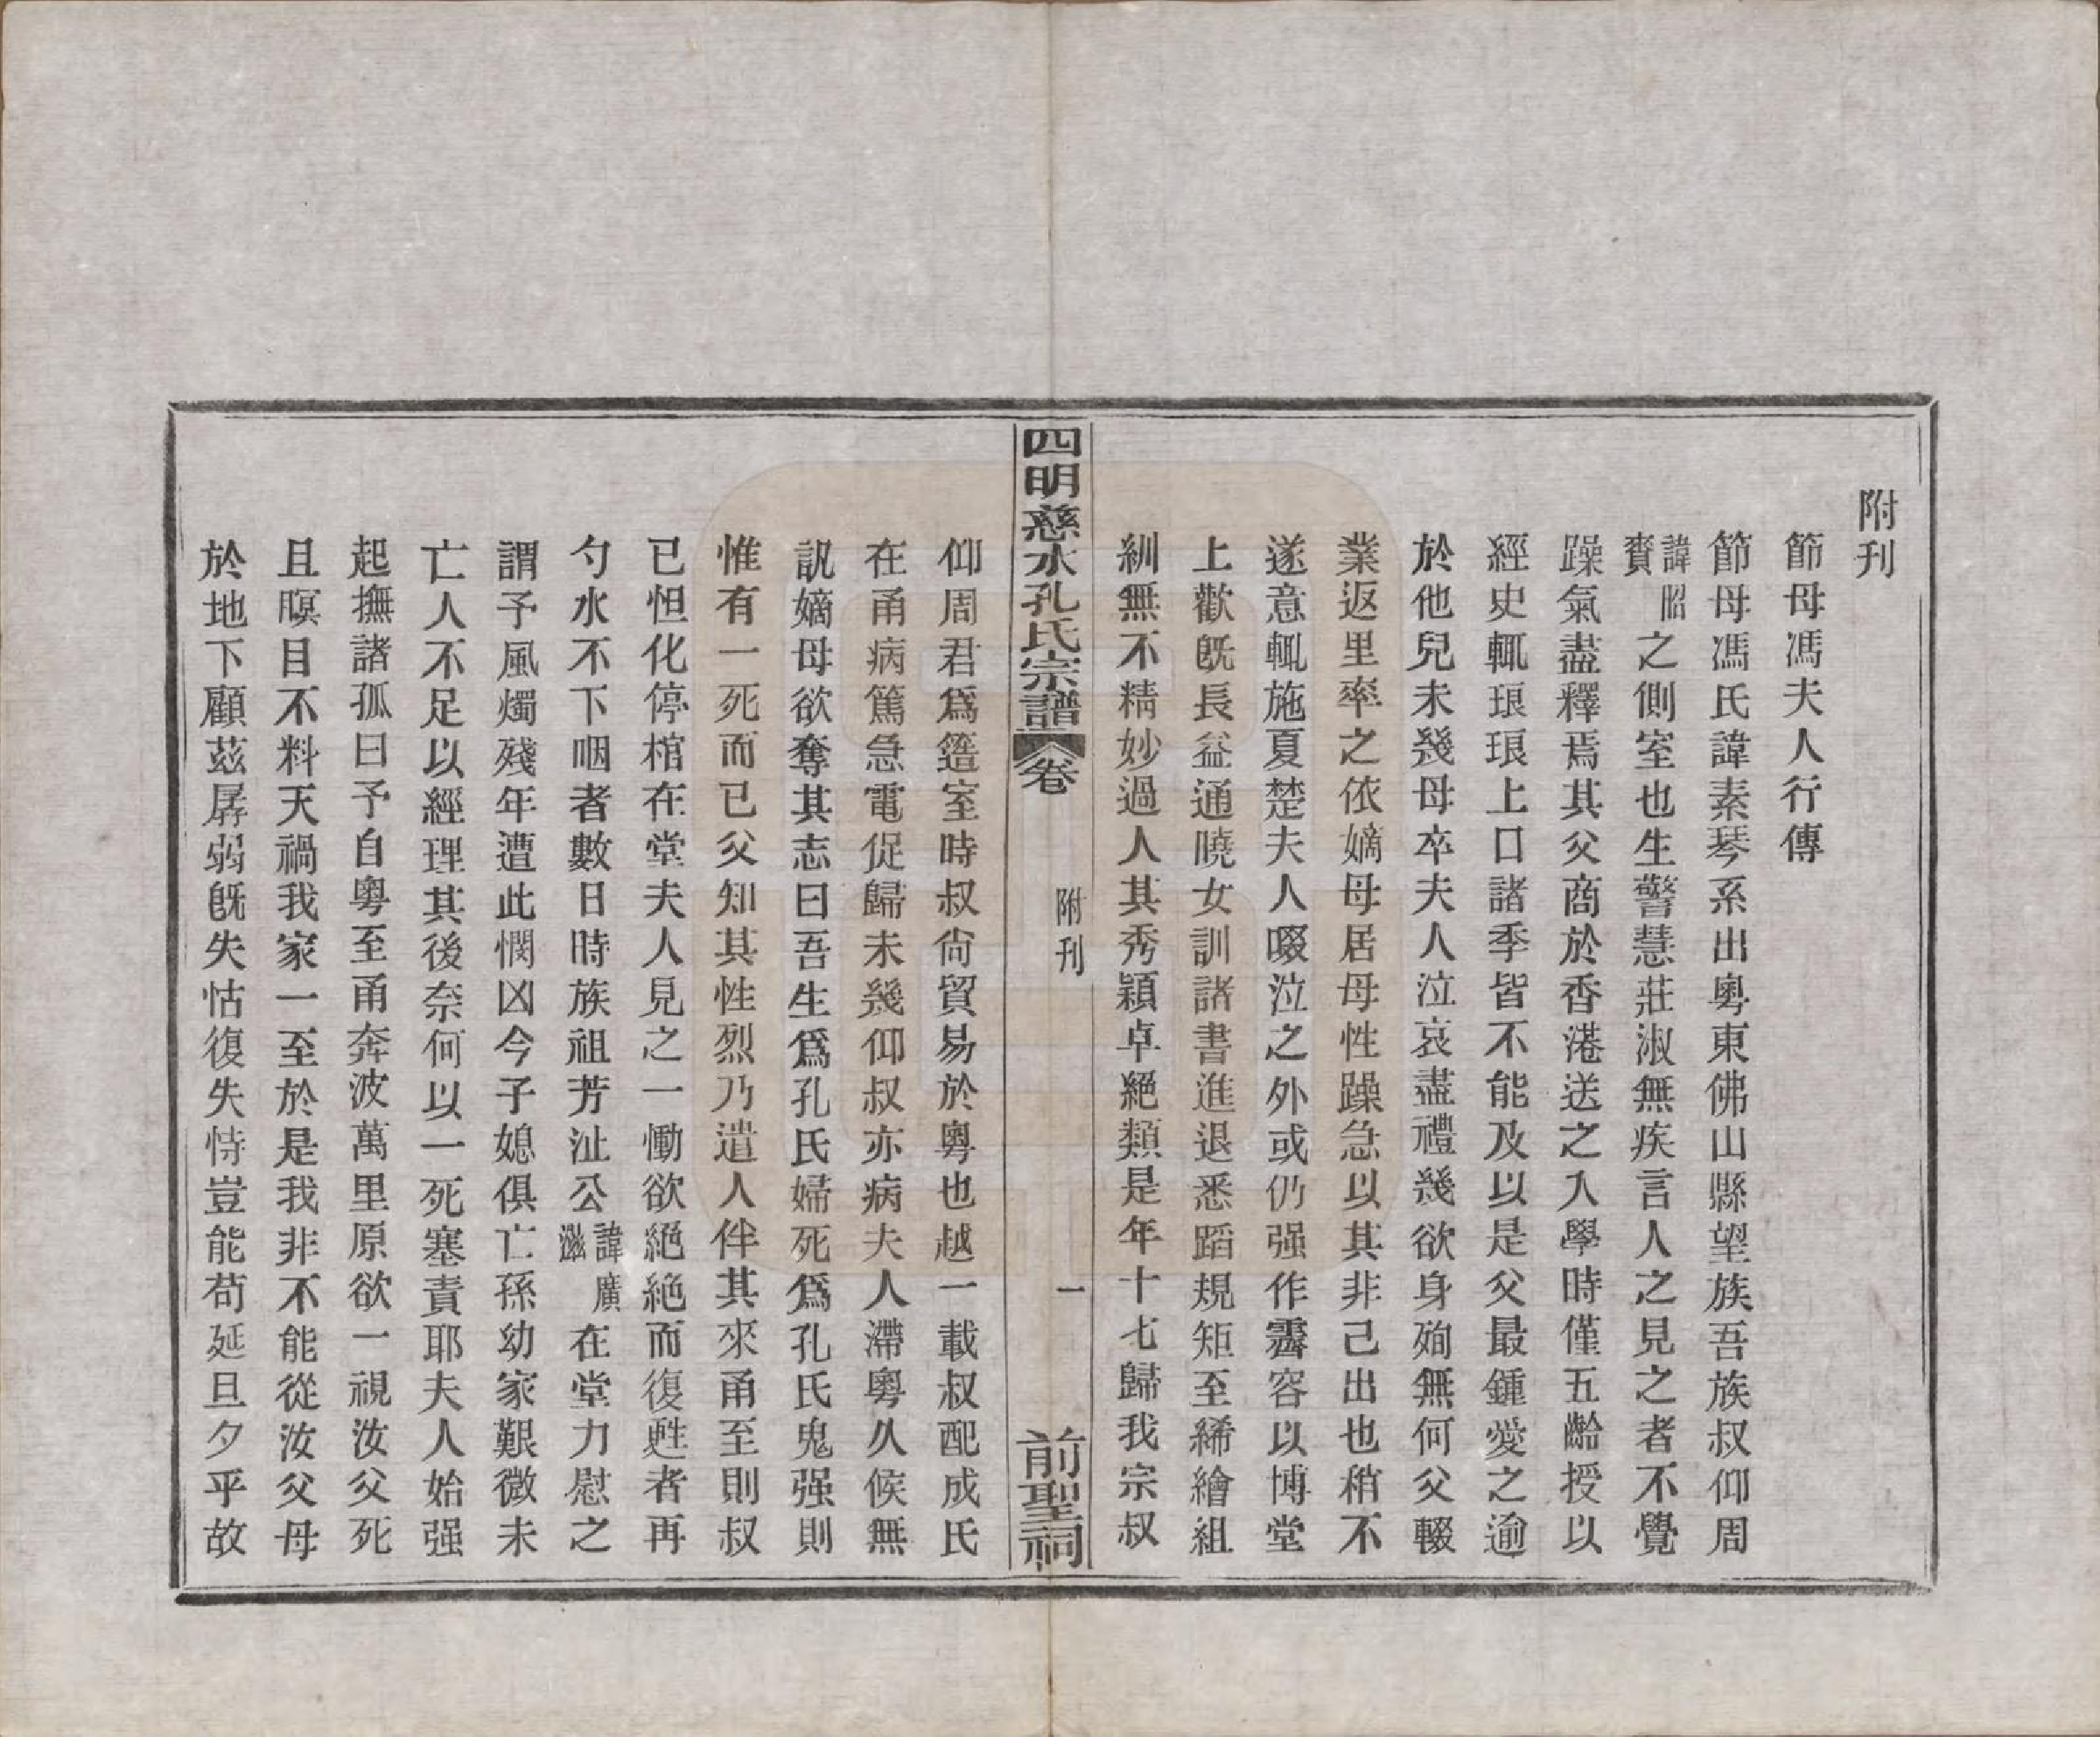 附刊
節母馮夫人行傳
節母馮氏諱素琴系出粵東佛山縣望族吾族叔仰周
諱昭賚之側室也生警慧莊淑無疾言人之見之者不覺
躁氣盡釋焉其父商於香港送之入學時僅五齡授以
經史輒琅琅上口諸季皆不能及以是父最鍾愛之逾
於他兒未幾母卒夫人泣哀盡禮幾欲身殉無何父輟
業返里率之依嫡母居母性躁急以其非己出也稍不
遂意輒施夏楚夫人啜泣之外或仍强作霽容以博堂
上歡既長益通曉女訓諸書進退悉蹈規矩至絺繪組
紃無不精妙過人其秀穎卓絕類是年十七歸我宗叔
四明慈水孔氏宗譜 卷 附刊 一 前聖祠
仰周君爲簉室時叔尙貿易於粵也越一載叔配成氏
在甬病篤急電促歸未幾仰叔亦病夫人滯粵久候無
訊嫡母欲奪其志曰吾生爲孔氏婦死爲孔氏鬼强則
惟有一死而已父知其性烈乃遣人伴其來甬至則叔
已怛化停棺在堂夫人見之一慟欲絕絕而復甦者再
勺水不下咽者數日時族祖芳沚公諱廣滋在堂力慰之
謂予風燭殘年遭此憫凶今子媳俱亡孫幼家艱微未
亡人不足以經理其後奈何以一死塞責耶夫人始强
起撫諸孤曰予自粵至甬奔波萬里原欲一視汝父死
且瞑目不料天禍我家一至於是我非不能從汝父母
於地下顧茲孱弱既失怙復失恃豈能苟延旦夕乎故